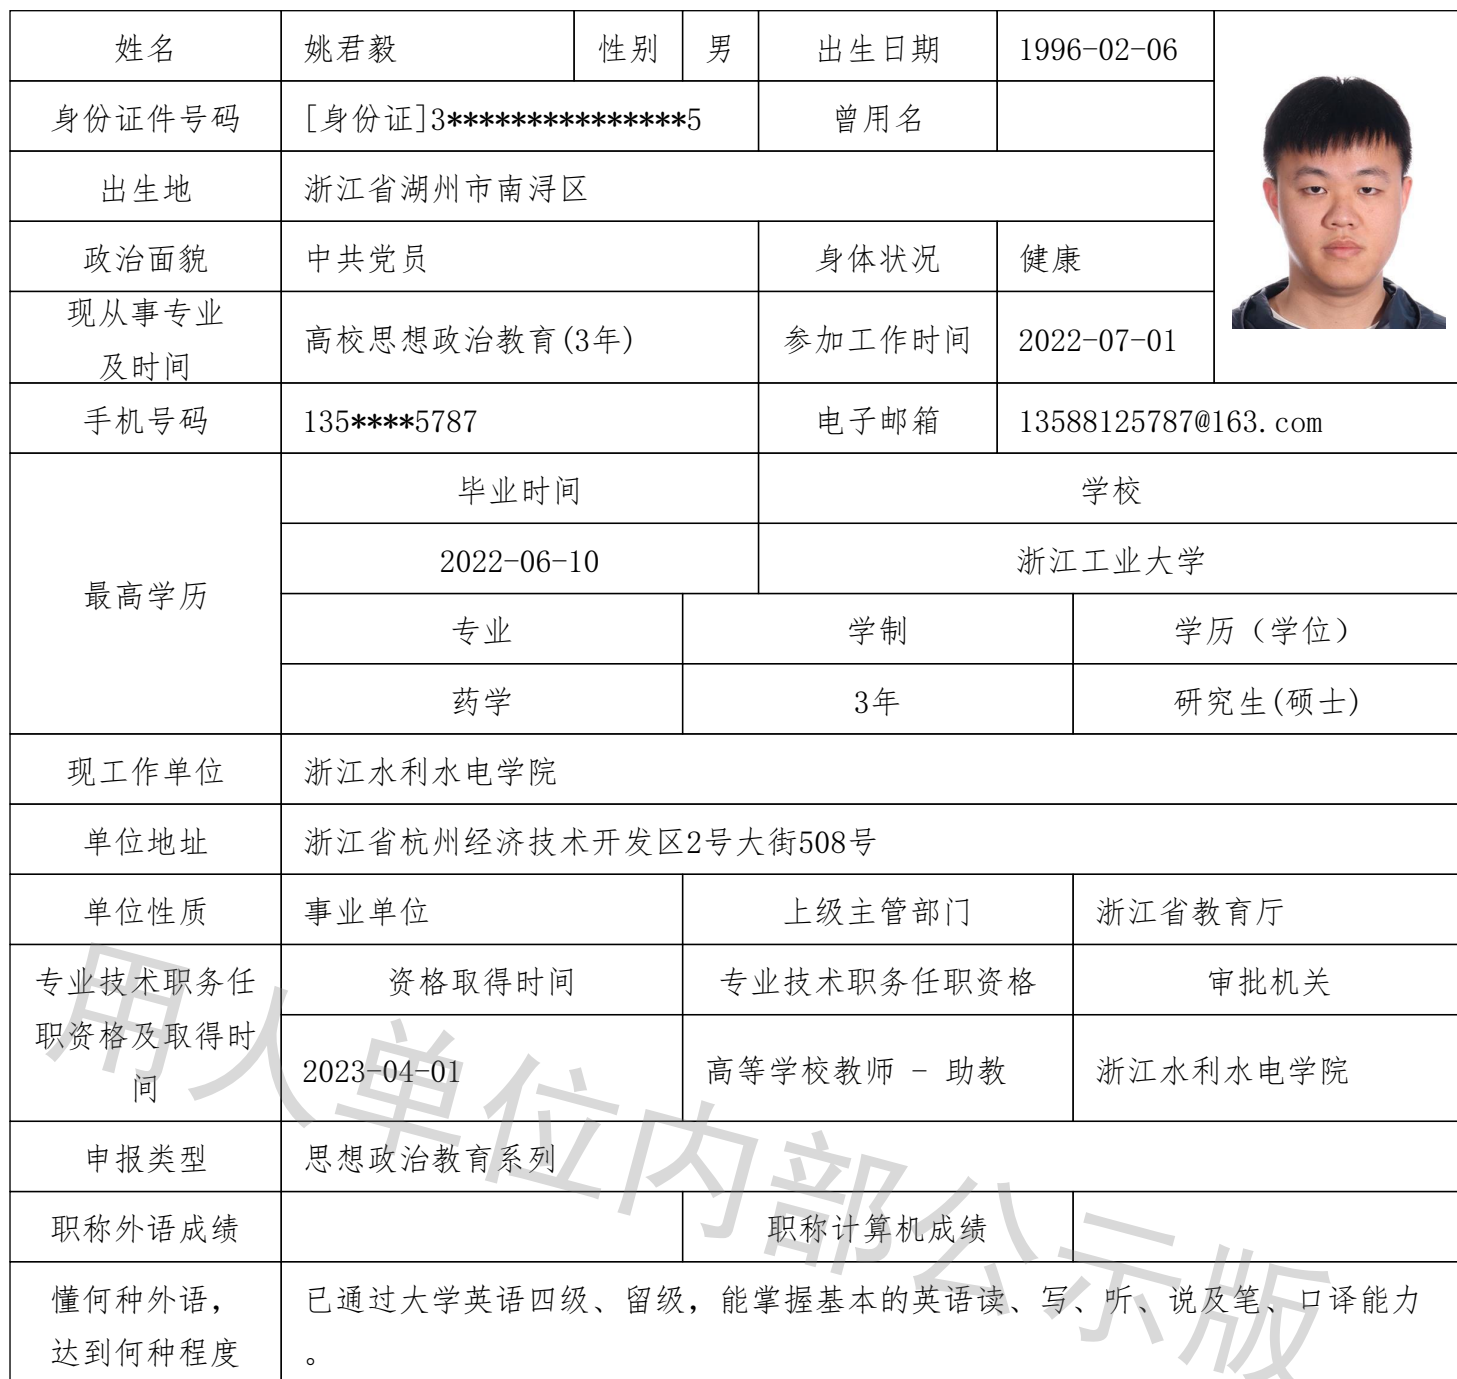 姓名 姚君毅 性别 男 出生日期 1996-02-06
身份证件号码 [身份证]3***************5 曾用名
出生地 浙江省湖州市南浔区
政治面貌 中共党员 身体状况 健康
现从事专业
及时间 高校思想政治教育(3年) 参加工作时间 2022-07-01
手机号码 135****5787 电子邮箱 13588125787@163.com
最高学历
毕业时间 学校
2022-06-10 浙江工业大学
专业 学制 学历（学位）
药学 3年 研究生(硕士)
现工作单位 浙江水利水电学院
单位地址 浙江省杭州经济技术开发区2号大街508号
单位性质 事业单位 上级主管部门 浙江省教育厅
专业技术职务任
职资格及取得时
间
资格取得时间 专业技术职务任职资格 审批机关
2023-04-01 高等学校教师 - 助教 浙江水利水电学院
申报类型 思想政治教育系列
职称外语成绩 职称计算机成绩
懂何种外语，
达到何种程度
已通过大学英语四级、留级，能掌握基本的英语读、写、听、说及笔、口译能力
。
用人单位内部公示版